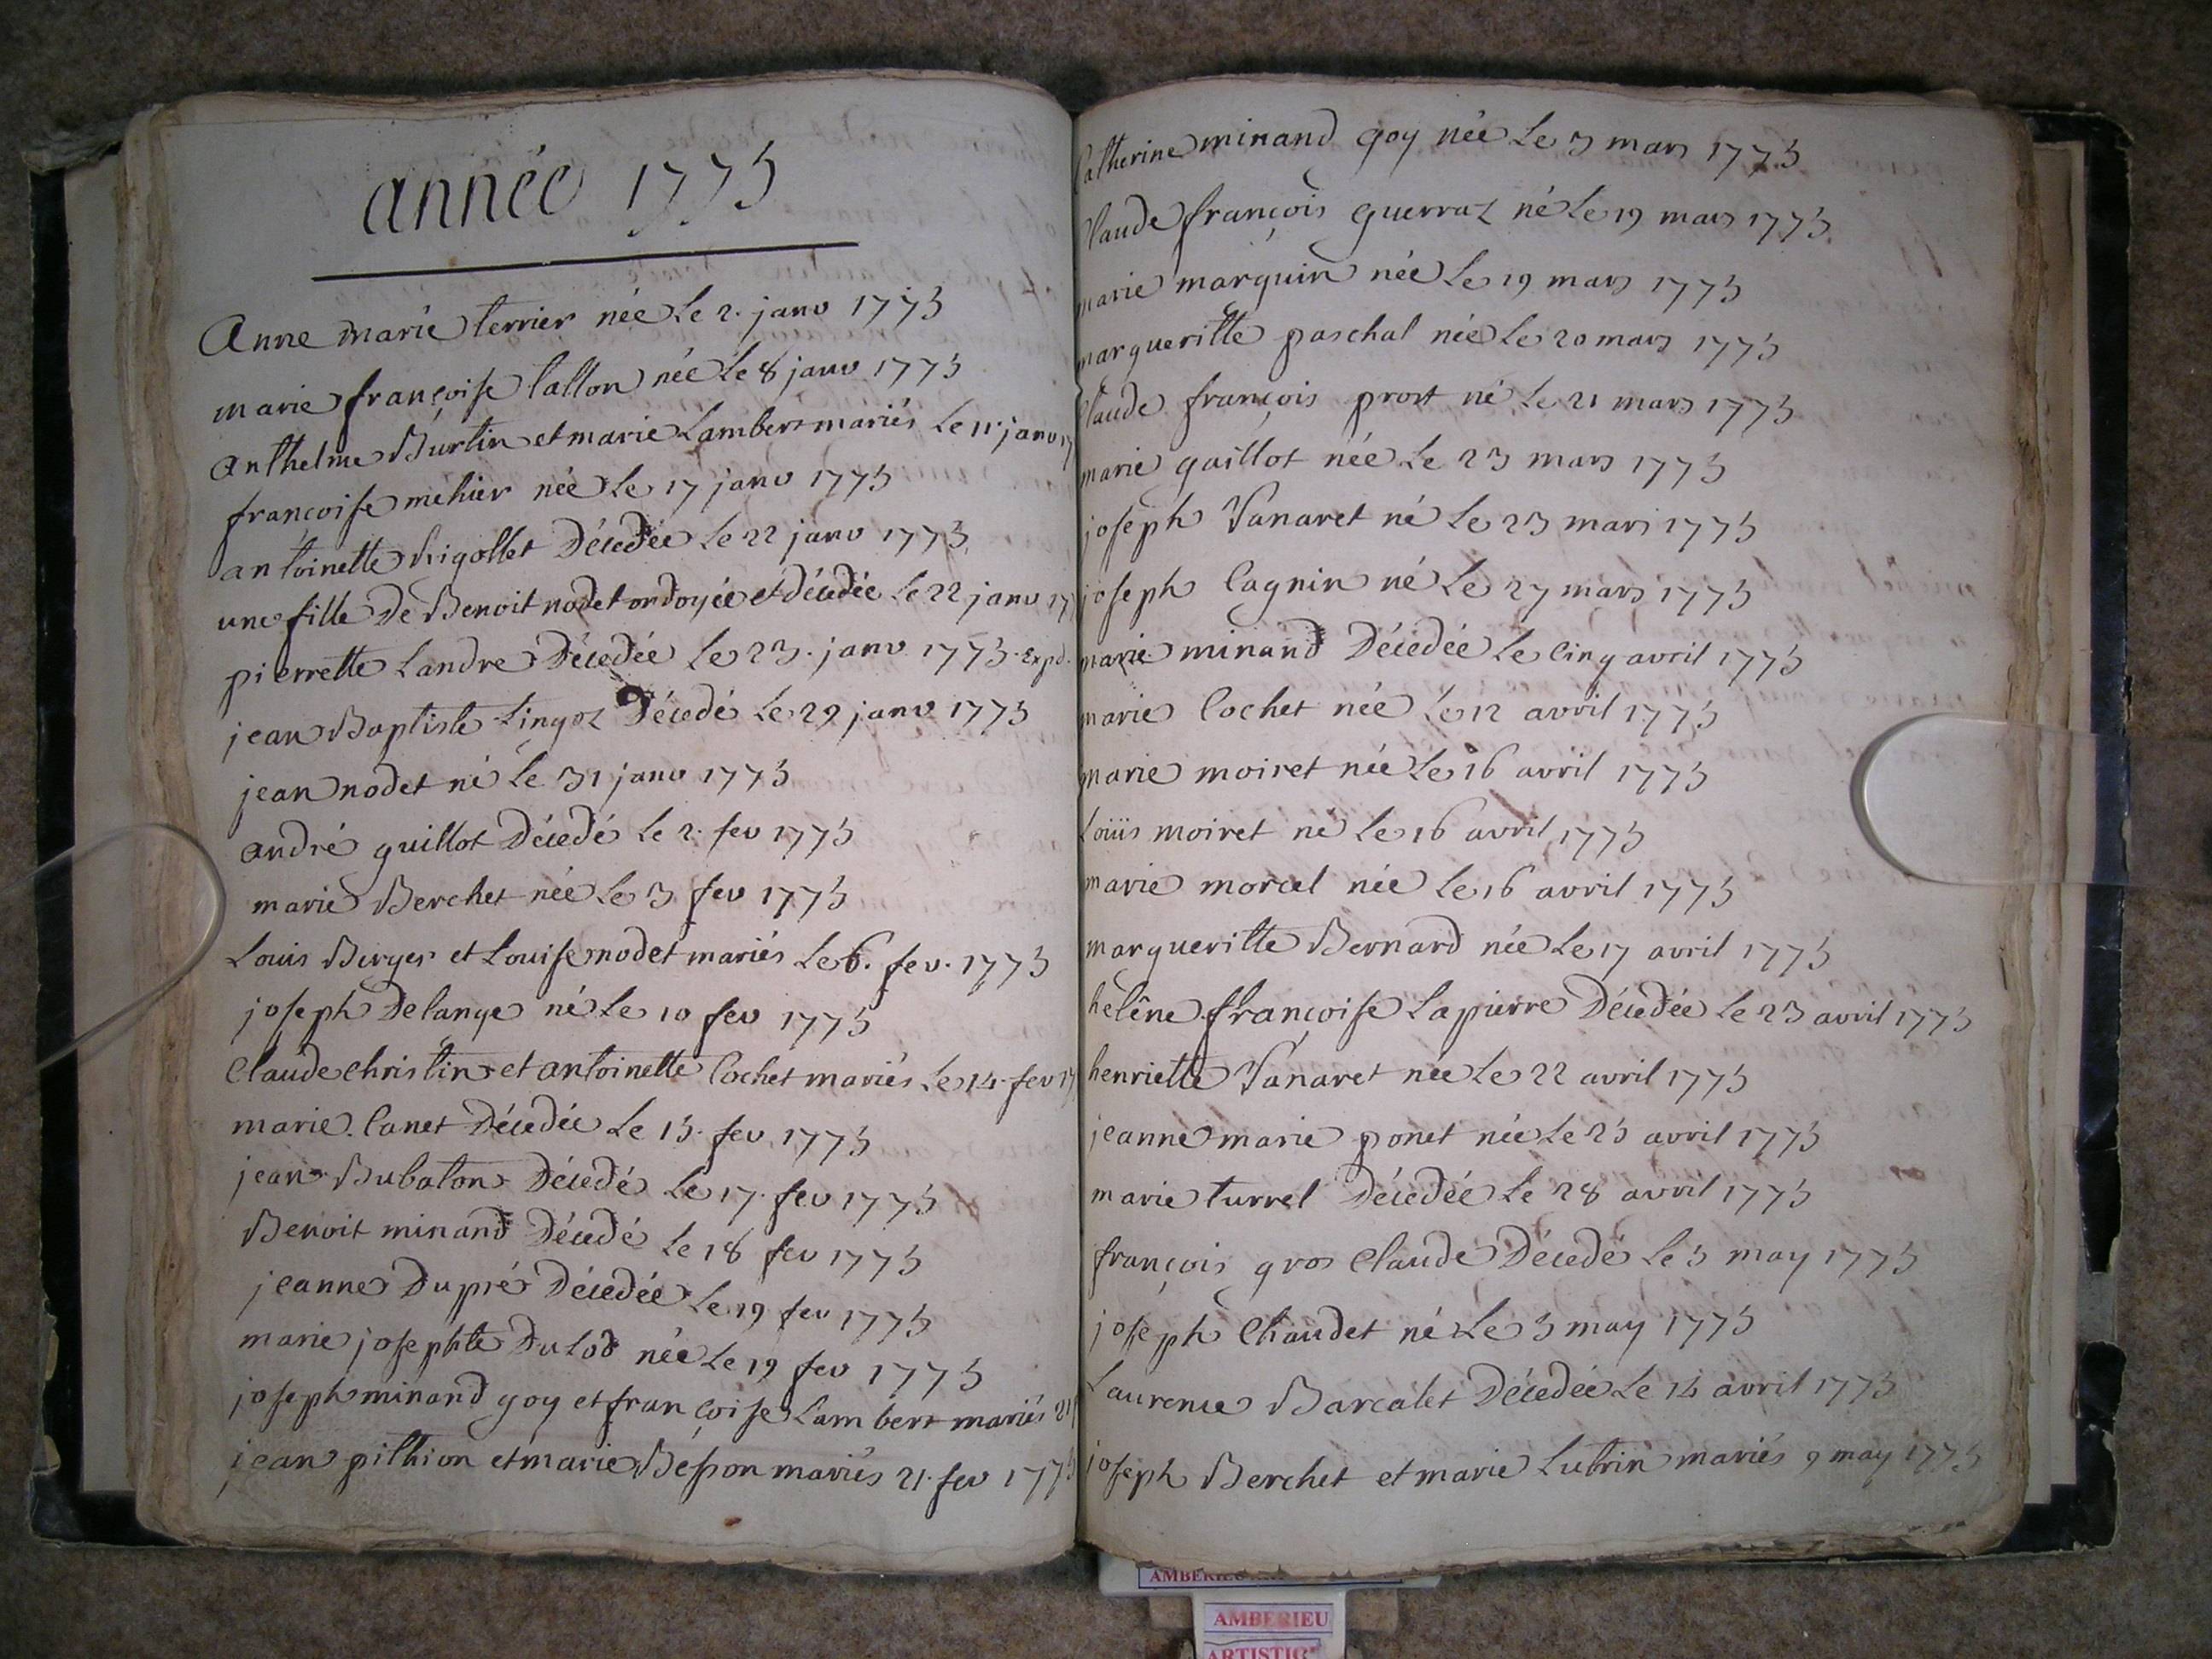 année 1775
Anne marie terrier née Le 2. janv 1775
marie françoise Callon née Le 8 janv 1775
anthelme Burtin et marie Lambert mariés Le 11 janv 17
françoise mehier née Le 17 janv 1775
antoinette Rigollet Décedée Le 22 janv 1775
une fille De Benoit nodet ondoyée et décedée Le 22 janv 17
pierrette Landre Décedée Le 23. janv 1775. Expd.
jean Baptiste Lingoz Décedé Le 29 janv 1775
jean nodet né Le 31 janv 1775
andré guillot Décedé Le 2. fev 1775
marie Berchet née Le 3 fev 1775
Louis Berger et Louise nodet mariés Le 6. fev. 1775
joseph Delange né Le 10 fev 1775
Claude Christin et antoinette Cochet mariés Le 14. fev 17
marie. Canet Décedée Le 15. fev 1775
jean Bubaton Décedé Le 17. fev 1775
Benoit minand Décedé Le 18 fev 1775
jeanne Dupré Décedée Le 19 fev 1775
marie josephte Dulod née Le 19 fev 1775
joseph minand goy et françoise Lambert mariés 21
jean pithion et marie Besson mariés 21. fev 1775
Catherine minand goy née Le 3 mars 1775
Claude françois guerraz né Le 19 mars 1775
marie marquin née Le 19 mars 1775
margueritte paschal née Le 20 mars 1775
Claude françois prost né Le 21 mars 1775
marie guillot née Le 23 mars 1775
joseph Vanaret né Le 23 mars 1775
joseph Cagnin né Le 27 mars 1775
marie minand Décedée Le Cinq avril 1775
marie Cochet née Le 12 avril 1775
marie moiret née Le 16 avril 1775
Louis moiret né Le 16 avril 1775
marie morcel née Le 16 avril 1775
margueritte Bernard née Le 17 avril 1775
helêne françoise Lapierre Décedée Le 23 avril 1775
henriette Vanaret née Le 22 avril 1775
jeanne marie ponet née Le 25 avril 1775
marie turrel Décedée Le 28 avril 1775
françois gros Claude Décedé Le 5 may 1775
joseph Chaudet né Le 5 may 1775
Laurence Barcalet Décedée Le 14 avril 1775
joseph Berchet et marie Lubrin mariés 9 may 1775
AMBERIEU
AMBERIEU
ARTISTIC